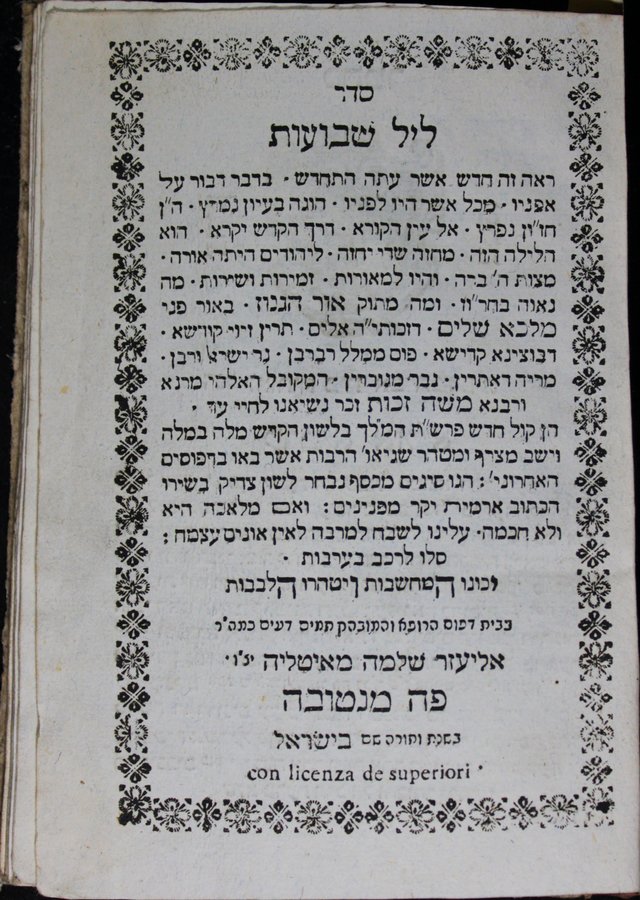 סדר
ליל שבועות
ראה זה חדש אשר עתה התחדש · בדבר דבור על
אפניו · מכל אשר היו לפניו · הוגה בעיון נמרץ · ה"ן
חז"ון נפרץ · אל עין הקורא · דרך הקדש יקרא · הוא
הלילה הזה · מחוה שדי יחזה · ליהודים היתה אורה ·
מצות ה' ברה · והיו למאורות · זמירות ושירות · מה
נאוה בחר"וז · ומה מתוק אור הגנוז · באור פני
מלכא שלים · דזכותי"ה אלים · תרין זיוי קודשא ·
דבוצינא קדישא · פום ממלל רברבן · נר ישראל ורבן ·
מריה דאתרין · גבר מגוברין · המקובל האלהי מרנא
ורבנא משה זכות זכר נשיאנו לחיי עד ·
הן קול חדש פרש"ת המלך בלשון הקדש מלה במלה
וישב מצרף ומטהר שגיאו' הרבות אשר באו בדפוסים
האחרוני' : הנו סיגים מכסף נבחר לשון צדיק בשירו
הכתוב ארמית יקר מפנינים : ואם מלאכה היא
ולא חכמה · עלינו לשבח למרבה לאין אונים עצמה :
סלו לרכב בערבות ·
יכונו המחשבות ויטהרו הלבבות
בבית דפוס הרופא והמובהק תמים דעים כמה"ר
אליעזר שלמה מאיטליה יצ"ו ·
פה מנטובה
בשנת ותורה שם בישראל
con licenza de superiori ·